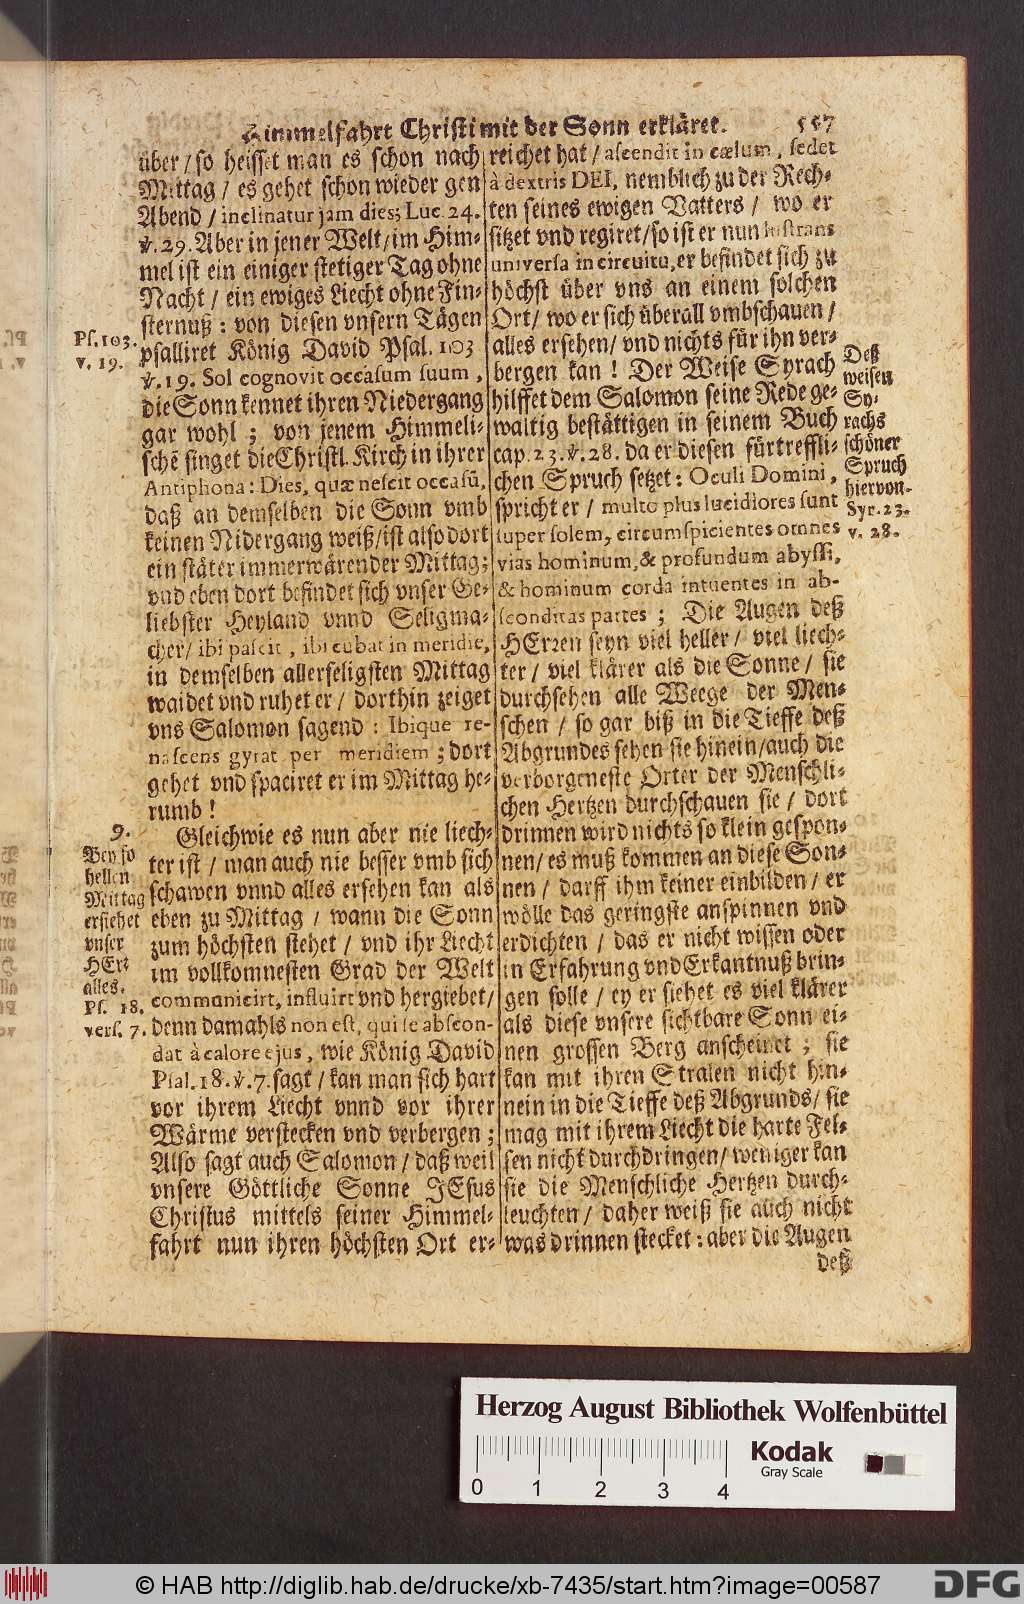 Himmelfahrt Christi mit der Sonn erkläret. 557
über / so heisset man es schon nach
Mittag / es gehet schon wieder gen
Abend / inclinatur jam dies; Luc. 24.
℣. 29. Aber in jener Welt / im Him-
mel ist ein einiger stetiger Tag ohne
Nacht / ein ewiges Liecht ohne Fin-
sternuß : von diesen vnsern Tägen
psalliret König David Psal. 103
℣. 19. Sol cognovit occasum suum,
die Sonn kennet ihren Niedergang
gar wohl ; von jenem Himmeli-
schē singet die Christl. Kirch in ihrer
Antiphona: Dies, quæ nescit occasū,
daß an demselben die Sonn vmb
keinen Nidergang weiß / ist also dort
ein stäter immerwärender Mittag;
vnd eben dort befindet sich vnser Ge-
liebster Heyland vnnd Seligma-
cher / ibi pascit, ibi cubat in meridie,
in demselben allerseligsten Mittag
waidet vnd ruhet er / dorthin zeiget
vns Salomon sagend : Ibique re-
nascens gyrat per meridiem ; dort
gehet vnd spaciret er im Mittag he-
rumb !
Gleichwie es nun aber nie liech-
ter ist / man auch nie besser vmb sich
schawen vnnd alles ersehen kan als
eben zu Mittag / wann die Sonn
zum höchsten stehet / vnd ihr Liecht
im vollkomnesten Grad der Welt
communicirt, influirt vnd hergiebet /
denn damahls non est, qui se abscon-
dat à calore ejus, wie König David
Psal. 18. ℣. 7. sagt / kan man sich hart
vor ihrem Liecht vnnd vor ihrer
Wärme verstecken vnd verbergen ;
Also sagt auch Salomon / daß weil
vnsere Göttliche Sonne JEsus
Christus mittels seiner Himmel-
fahrt nun ihren höchsten Ort er-
Ps. 103.
v. 19.
9.
Bey so
hellen
Mittag
ersiehet
vnser
HErr
alles.
Ps. 18.
vers. 7.
reichet hat / ascendit in cœlum, sedet
à dextris DEI, nemblich zu der Rech-
ten seines ewigen Vatters / wo er
sitzet vnd regiret / so ist er nun lustrans
universa in circuitu, er befindet sich zu
höchst über vns an einem solchen
Ort / wo er sich überall vmbschauen /
alles ersehen / vnd nichts für ihn ver-
bergen kan ! Der Weise Syrach
hilffet dem Salomon seine Rede ge-
waltig bestättigen in seinem Buch
cap. 23. ℣. 28. da er diesen fürtreffli-
chen Spruch setzet : Oculi Domini,
spricht er / multo plus lucidiores sunt
super solem, circumspicientes omnes
vias hominum, & profundum abyssi,
& hominum corda intuentes in ab-
sconditas partes ; Die Augen deß
HErren seyn viel heller / viel liech-
ter / viel klärer als die Sonne / sie
durchsehen alle Weege der Men-
schen / so gar biß in die Tieffe deß
Abgrundes sehen sie hinein / auch die
verborgeneste Orter der Menschli-
chen Hertzen durchschauen sie / dort
drinnen wird nichts so klein gespon-
nen / es muß kommen an diese Son-
nen / darff ihm keiner einbilden / er
wölle das geringste anspinnen vnd
erdichten / das er nicht wissen oder
in Erfahrung vnd Erkantnuß brin-
gen solle / ey er siehet es viel klärer
als diese vnsere sichtbare Sonn ei-
nen grossen Berg anscheinet ; sie
kan mit ihren Stralen nicht hin-
nein in die Tieffe deß Abgrunds / sie
mag mit ihrem Liecht die harte Fel-
sen nicht durchdringen / weniger kan
sie die Menschliche Hertzen durch-
leuchten / daher weiß sie auch nicht
was drinnen stecket : aber die Augen
deß
Deß
weisen
Sy-
rachs
schöner
Spruch
hiervon.
Syr. 23.
v. 28.
Herzog August Bibliothek Wolfenbüttel
Kodak
Gray Scale
0 1 2 3 4
© HAB http://diglib.hab.de/drucke/xb-7435/start.htm?image=00587
DFG